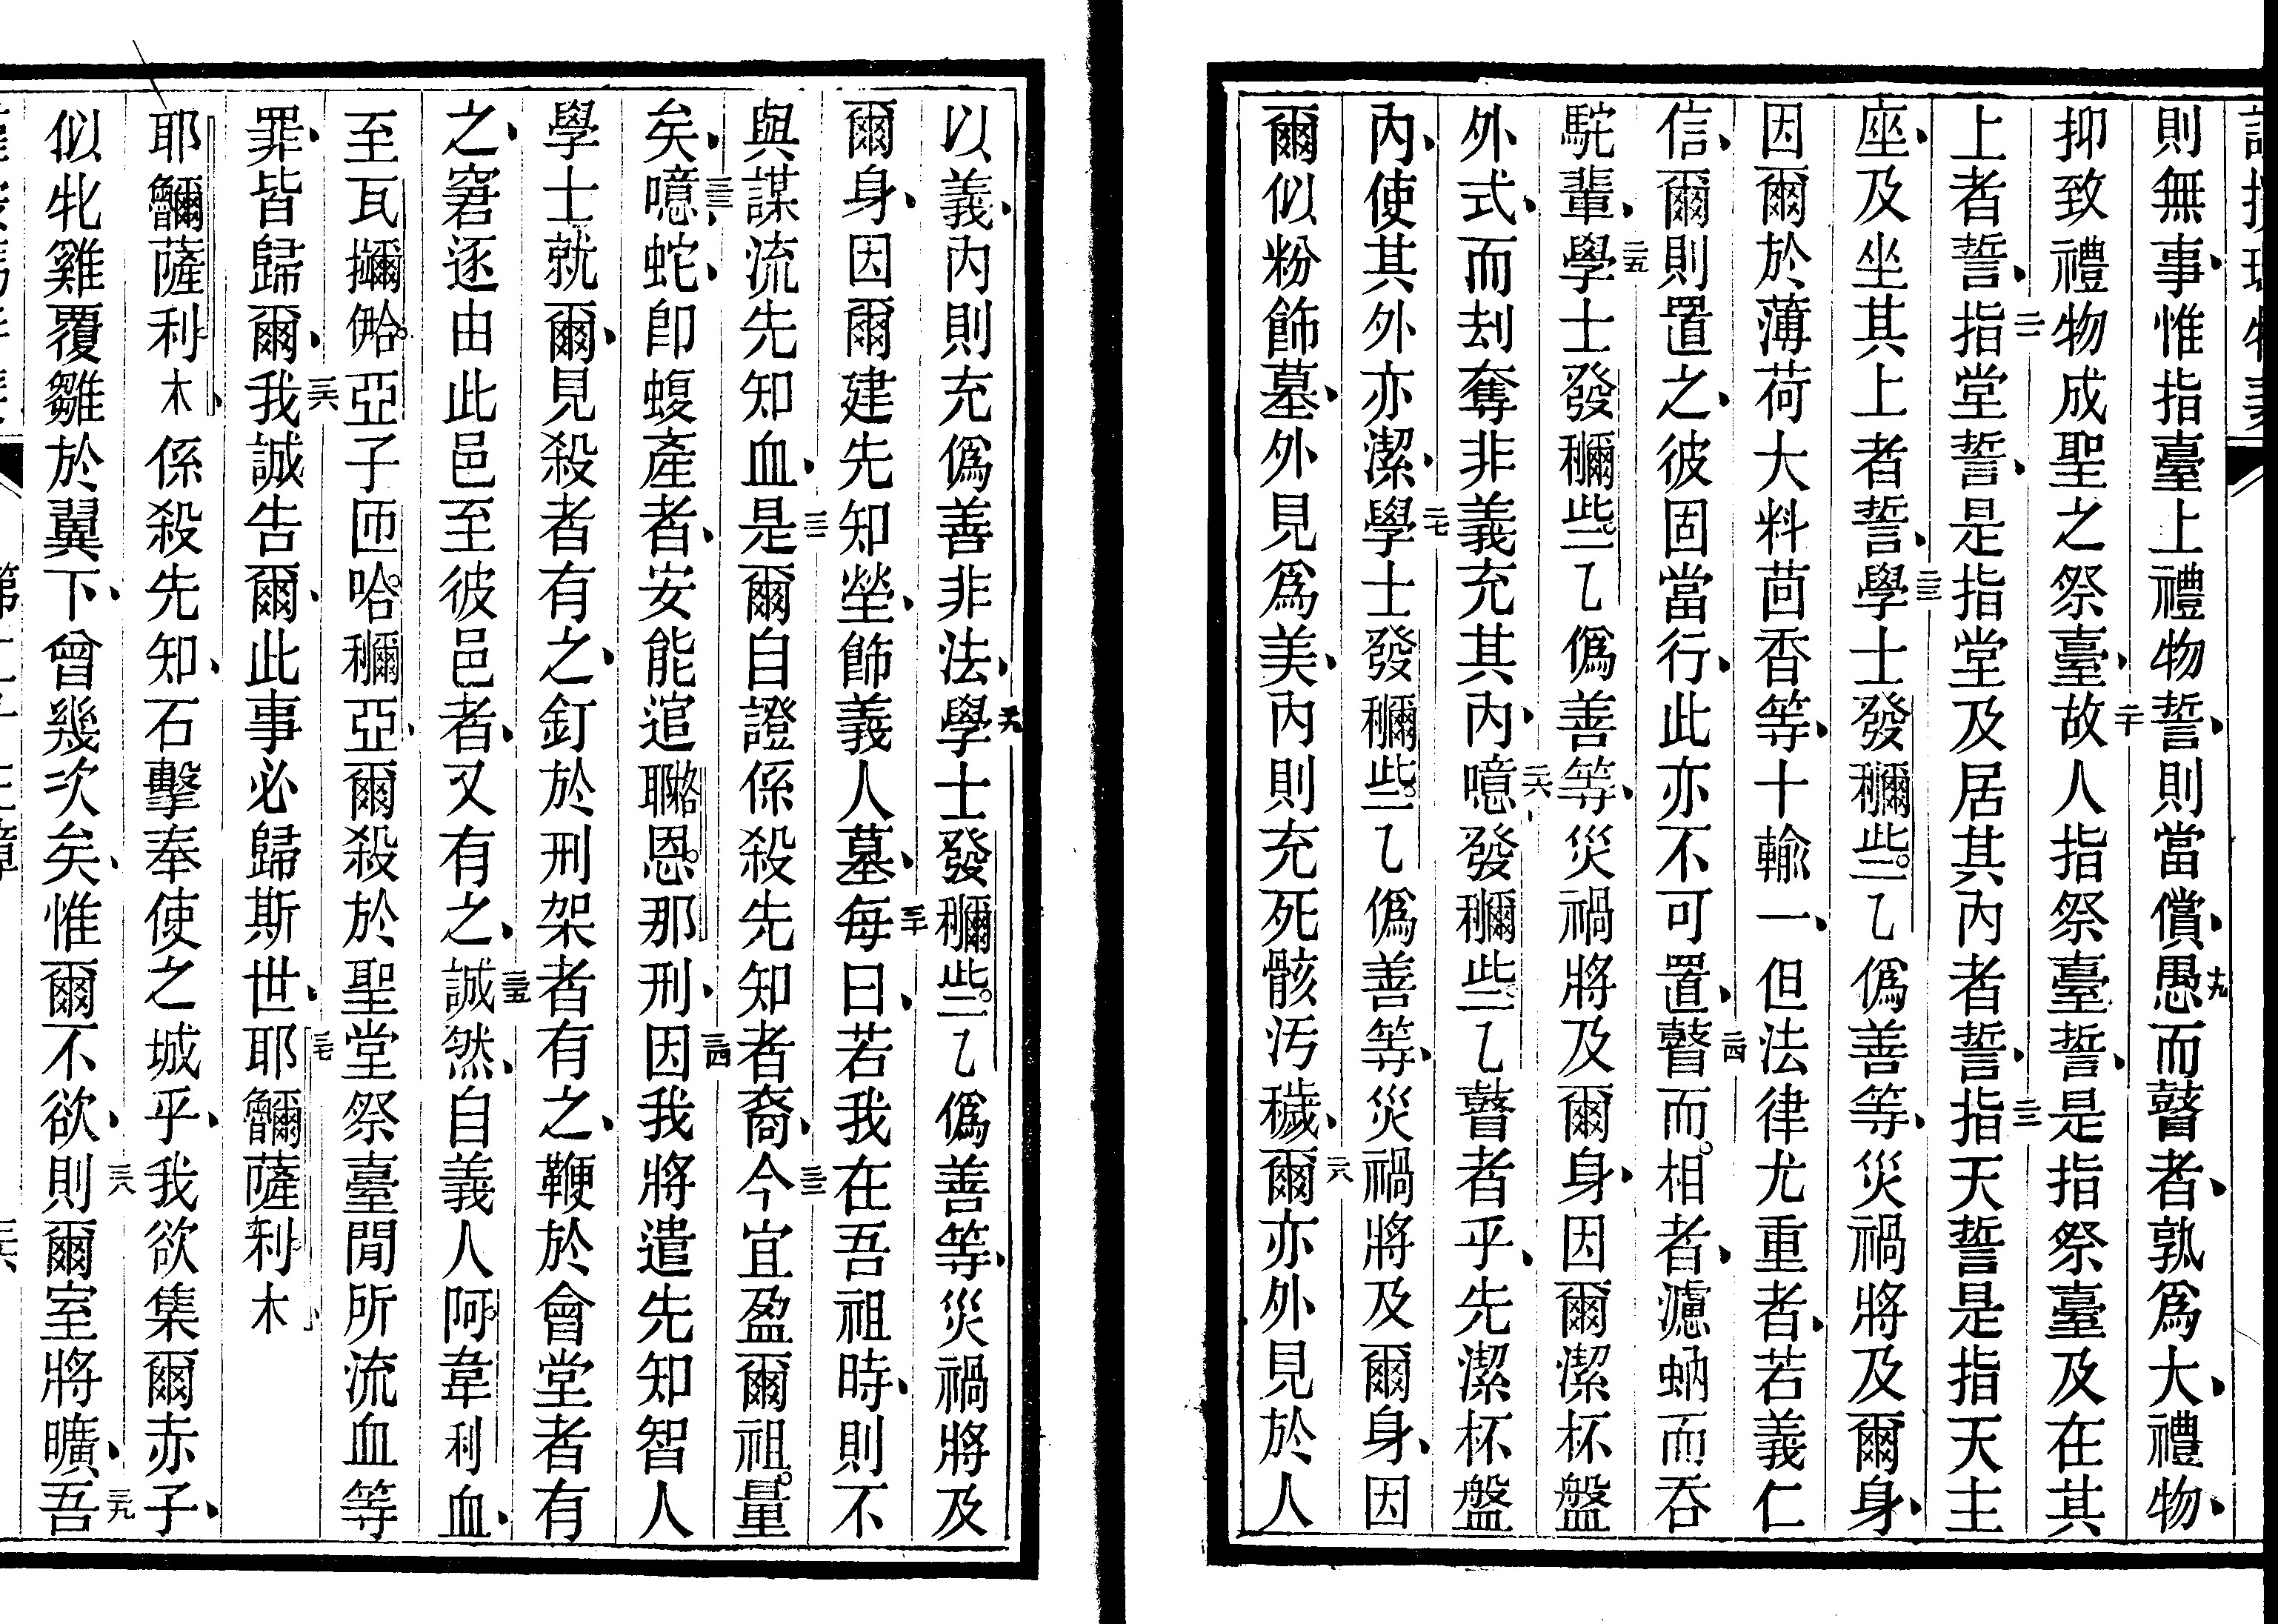 則無事惟指臺上禮物誓則當償十九愚而瞽者孰爲大禮物
抑致禮物成聖之祭臺二十故人指祭臺誓是指祭臺及在其
上者誓二一指堂誓是指堂及居其內者誓二二指天誓是指天主
座及坐其上者誓二三學士發穪些乙僞善等災禍將及爾身
因爾於薄荷大料茴香等十輸一但法律尤重者若義仁
信爾則置之彼固當行此亦不可置二四瞽而相者濾蚋而吞
駝輩二五學士發穪些乙僞善等災禍將及爾身因爾潔杯盤
外式而刦奪非義充其內二六噫發穪些乙瞽者乎先潔杯盤
內使其外亦潔二七學士發穪些乙僞善等災禍將及爾身因
爾似粉飾墓外見爲美內則充死骸汚穢二八爾亦外見於人
以義內則充僞善非法二九學士發穪些乙僞善等災禍將及
爾身因爾建先知塋飾義人墓三十每曰若我在吾祖時則不
與謀流先知血三一是爾自證係殺先知者裔三二今宜盈爾祖量
矣三三噫蛇卽蝮產者安能逭恩那刑三四因我將遣先知智人
學士就爾見殺者有之釘於刑架者有之鞭於會堂者有
之窘逐由此邑至彼邑者又有之三五誠然自義人阿韋利血
至瓦亞子匝哈穪亞爾殺於聖堂祭臺閒所流血等
罪皆歸爾三六我誠告爾此事必歸斯世三七耶薩利木
耶薩利木係殺先知石擊奉使之城乎我欲集爾赤子
似牝雞覆雛於翼下曾幾次矣惟爾不欲三八則爾室將曠三九吾